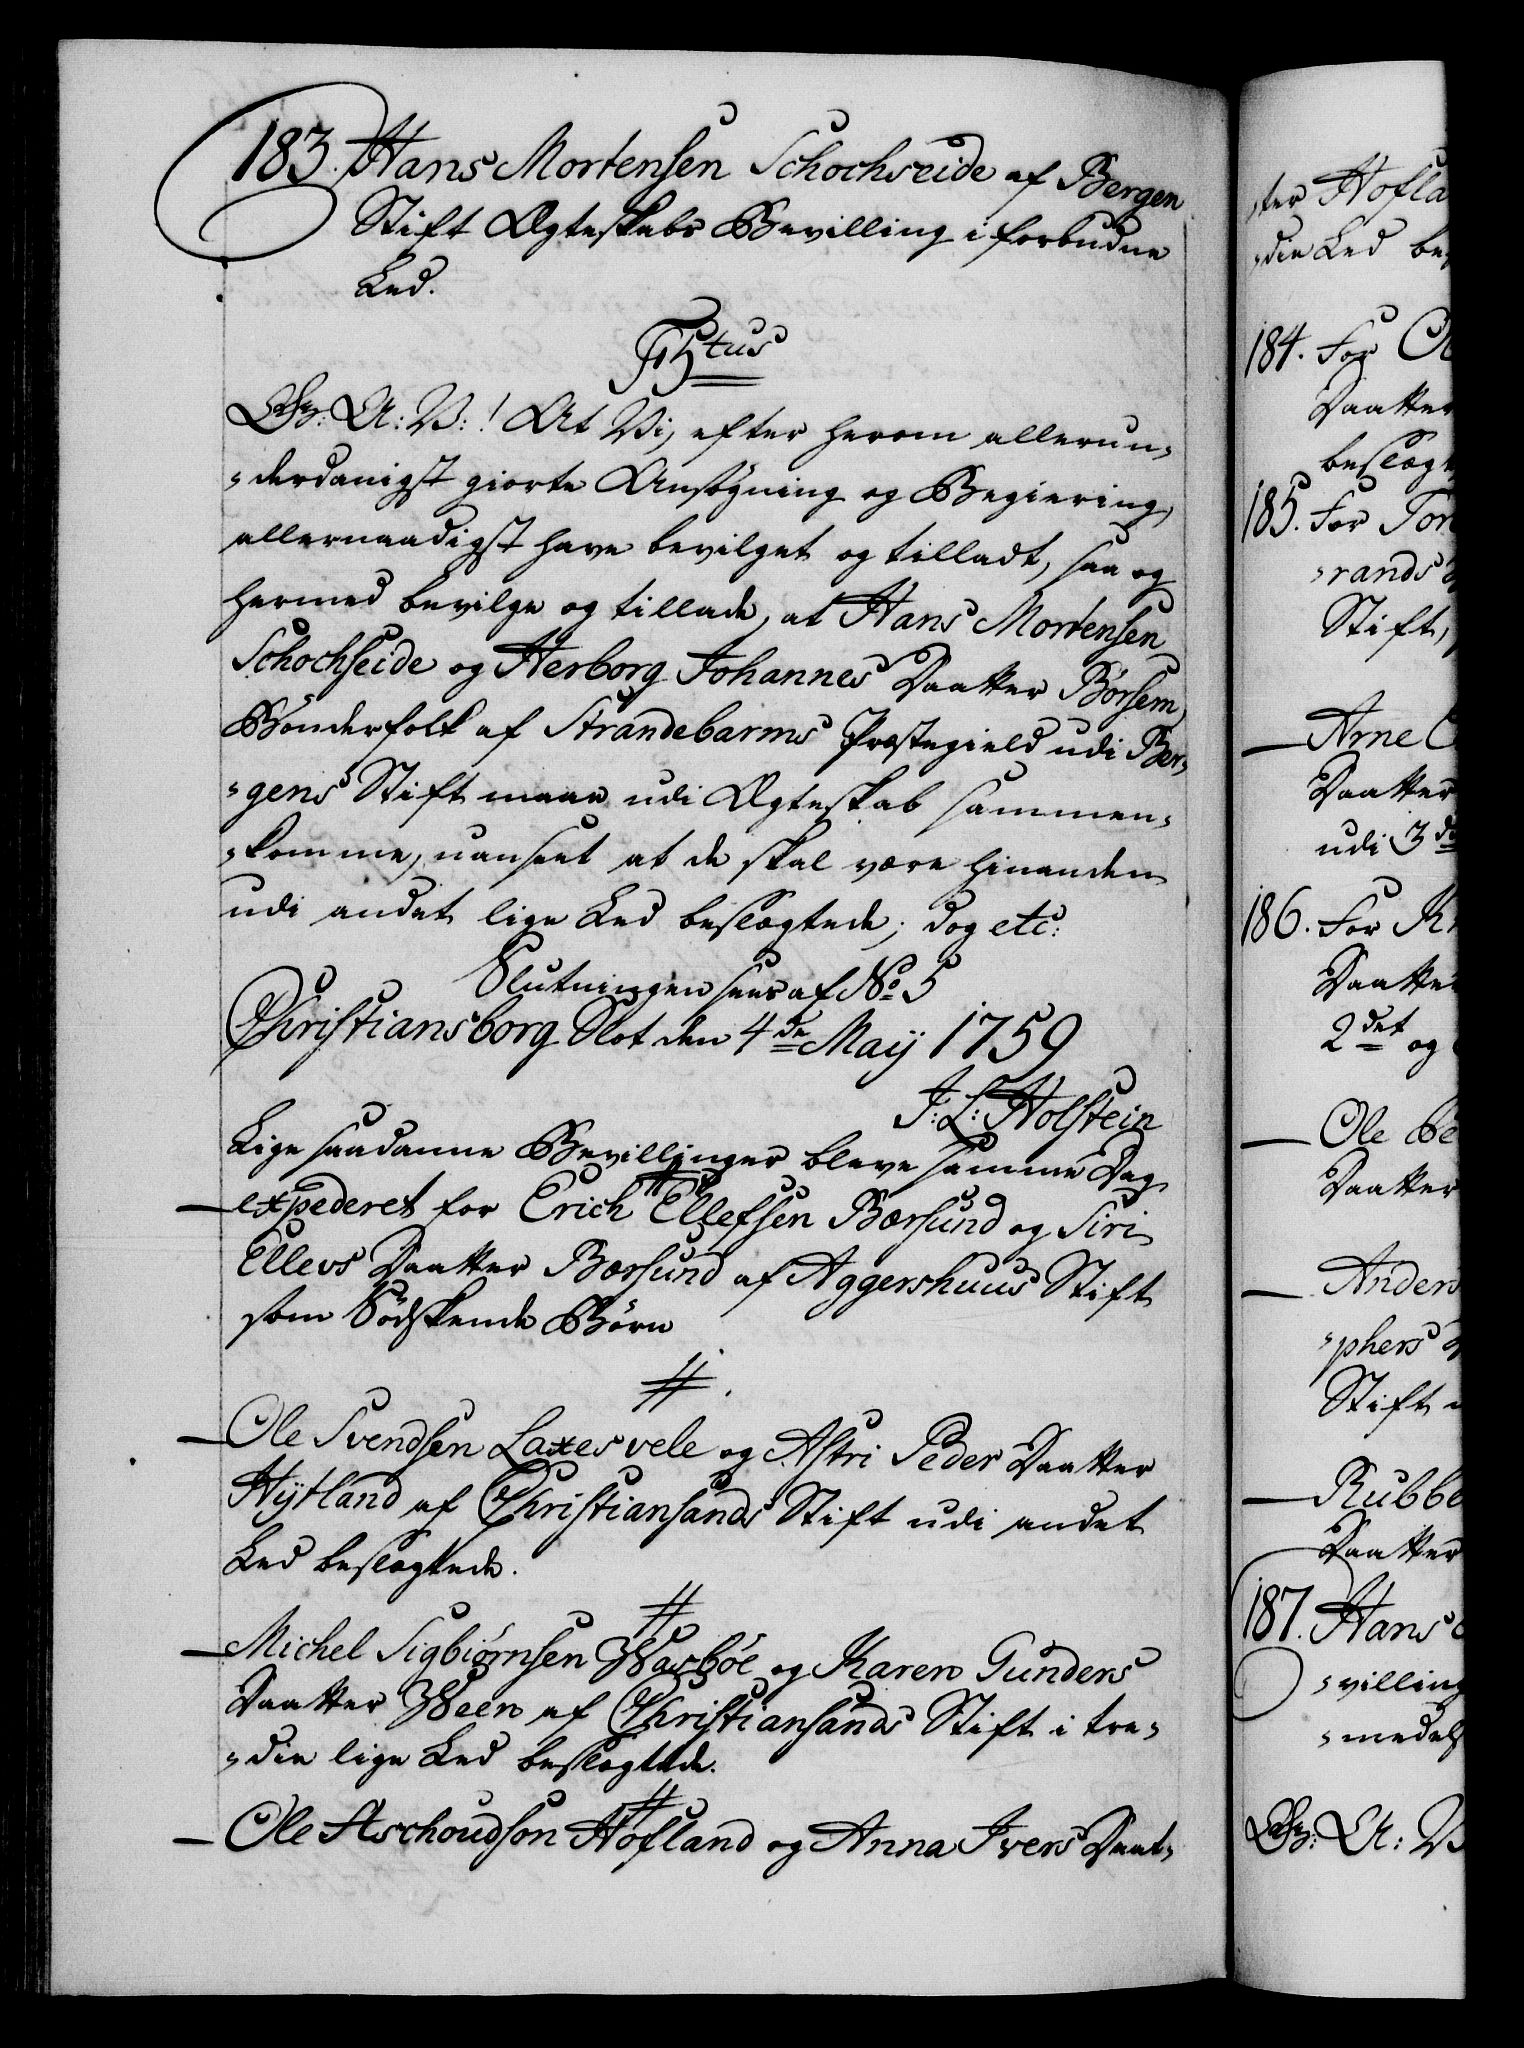 183. Hans Mortensen Schochseide af Bergen
Stift Ægteskabs Bevilling i forbudne
Led.
F 5tus
G: A: V: ! At Vi, efter herom allerun-
-derdanigst giorte Ansøgning og Begiering,
allernaadigst have bevilget og tilladt, saa og
hermed bevilge og tillade, at Hans Mortensen
Schochseide og Herborg Johannes Daatter Børsem,
Bønderfolk af Strandebarms Præstegield udi Ber-
-gens Stift maae udi Ægteskab sammen-
-komme, uanseet at de skal være hinanden
udi andet lige Led beslægtede; dog etc:
Slutningen sees af No 5
Christiansborg Slot den 4de Maij 1759
J: L: Holstein
Lige saadanne Bevillinger bleve samme Dag
expederet for Erich Ellefsen Bærsund og Siri
Ellevs Daatter Bærsund af Aggershuus Stift
som Sødskende Børn
Ole Svendsen Laxesvele og Astri Peder Daatter
Hÿtland af Christiansands Stift udi andet
Led beslægtede.
Michel Sigbiørnsen Wasbøe og Karen Gunders
Daatter Ween af Christiansands Stift i tre-
-die lige Led beslægtede.
Ole Aschoudson Hofland og Anna Ivers Daat-
-ter Hofla
-die Led be
184. For
Daatter
beslægt
185. For Tor
-rands
Stift,
Arne
Daatter
udi 3de
186. For
Daatter
2det og
Ole
Daatter
Anders
-phers
Stift
Rubbe
Daatter
187. Hans
-villing
-medelst
G: A: V